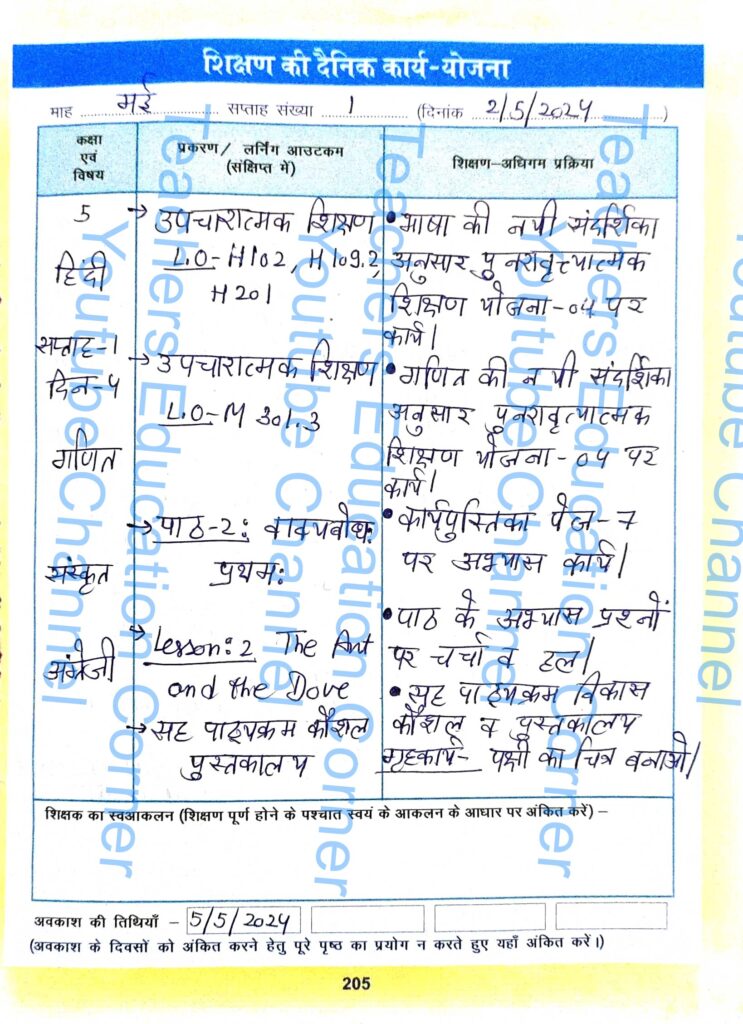 शिक्षण की दैनिक कार्य-योजना
माह मई सप्ताह संख्या 1 (दिनांक 2/5/2024)
कक्षा एवं विषय
प्रकरण/ लर्निंग आउटकम (संक्षिप्त में)
शिक्षण-अधिगम प्रक्रिया
5
हिंदी
सप्ताह-1
दिन-4
गणित
संस्कृत
अंग्रेजी
→ उपचारात्मक शिक्षण
L.O-H102, H109.2,
H201
→ उपचारात्मक शिक्षण
L.O-M 301.3
→ पाठ-2: वाक्यबोधः
प्रथमः
→ Lesson:2 The Ant
and the Dove
→ सह पाठ्यक्रम कौशल
पुस्तकालय
• भाषा की नयी संदर्शिका
अनुसार पुनरावृत्त्यात्मक
शिक्षण योजना-04 पर
कार्य।
• गणित की नयी संदर्शिका
अनुसार पुनरावृत्यात्मक
शिक्षण योजना-04 पर
कार्य।
• कार्यपुस्तिका पेज-7
पर अभ्यास कार्य।
• पाठ के अभ्यास प्रश्नों
पर चर्चा व हल।
• सह पाठ्यक्रम विकास
कौशल व पुस्तकालय
गृहकार्य- पक्षी का चित्र बनाओ।
शिक्षक का स्वआकलन (शिक्षण पूर्ण होने के पश्चात स्वयं के आकलन के आधार पर अंकित करें) –
अवकाश की तिथियाँ – 5/5/2024
(अवकाश के दिवसों को अंकित करने हेतु पूरे पृष्ठ का प्रयोग न करते हुए यहाँ अंकित करें।)
205
Teachers Education Corner
Youtube Channel
Teachers Education Corner
Youtube Channel
Teachers Education Corner
Youtube Channel